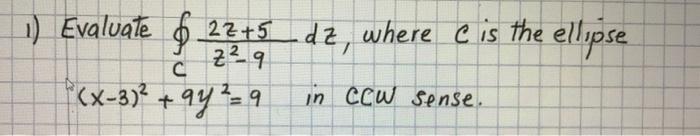 1) Evaluate ∮_C (2z+5)/(z²-9) dz, where C is the ellipse
(x-3)² + 9y² = 9 in CCW sense.